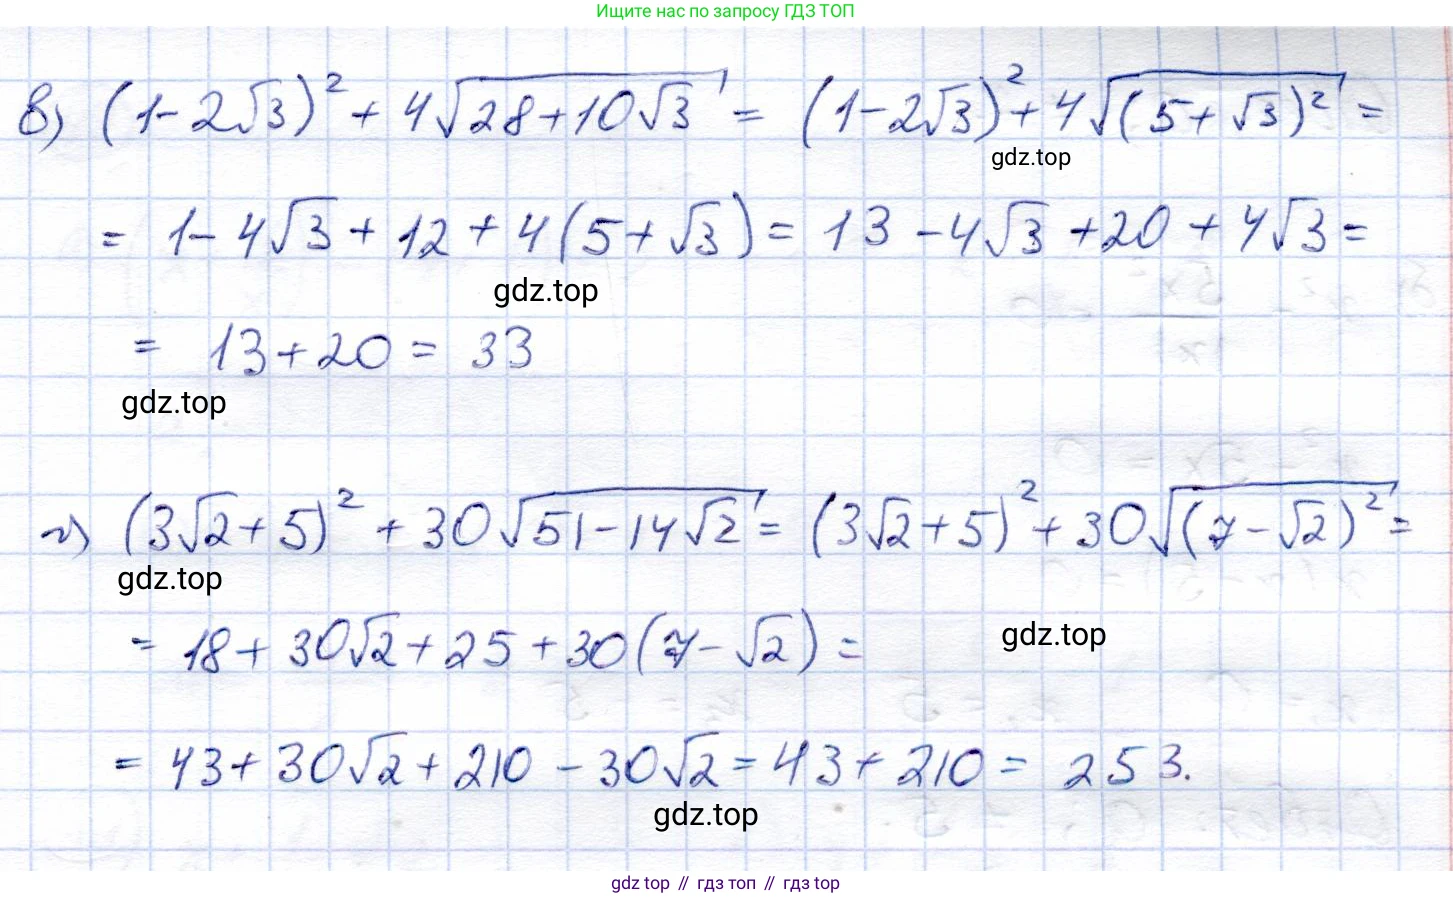 Ищите нас по запросу ГДЗ ТОП
в) (1-2√3)² + 4√(28+10√3) = (1-2√3)² + 4√((5+√3)²) =
gdz.top
= 1-4√3 + 12 + 4(5+√3) = 13 - 4√3 + 20 + 4√3 =
gdz.top
= 13+20 = 33
gdz.top
г) (3√2+5)² + 30√(51-14√2) = (3√2+5)² + 30√((7-√2)²) =
gdz.top
= 18 + 30√2 + 25 + 30(7-√2) =
gdz.top
= 43 + 30√2 + 210 - 30√2 = 43 + 210 = 253.
gdz.top
gdz top // гдз топ // гдз top